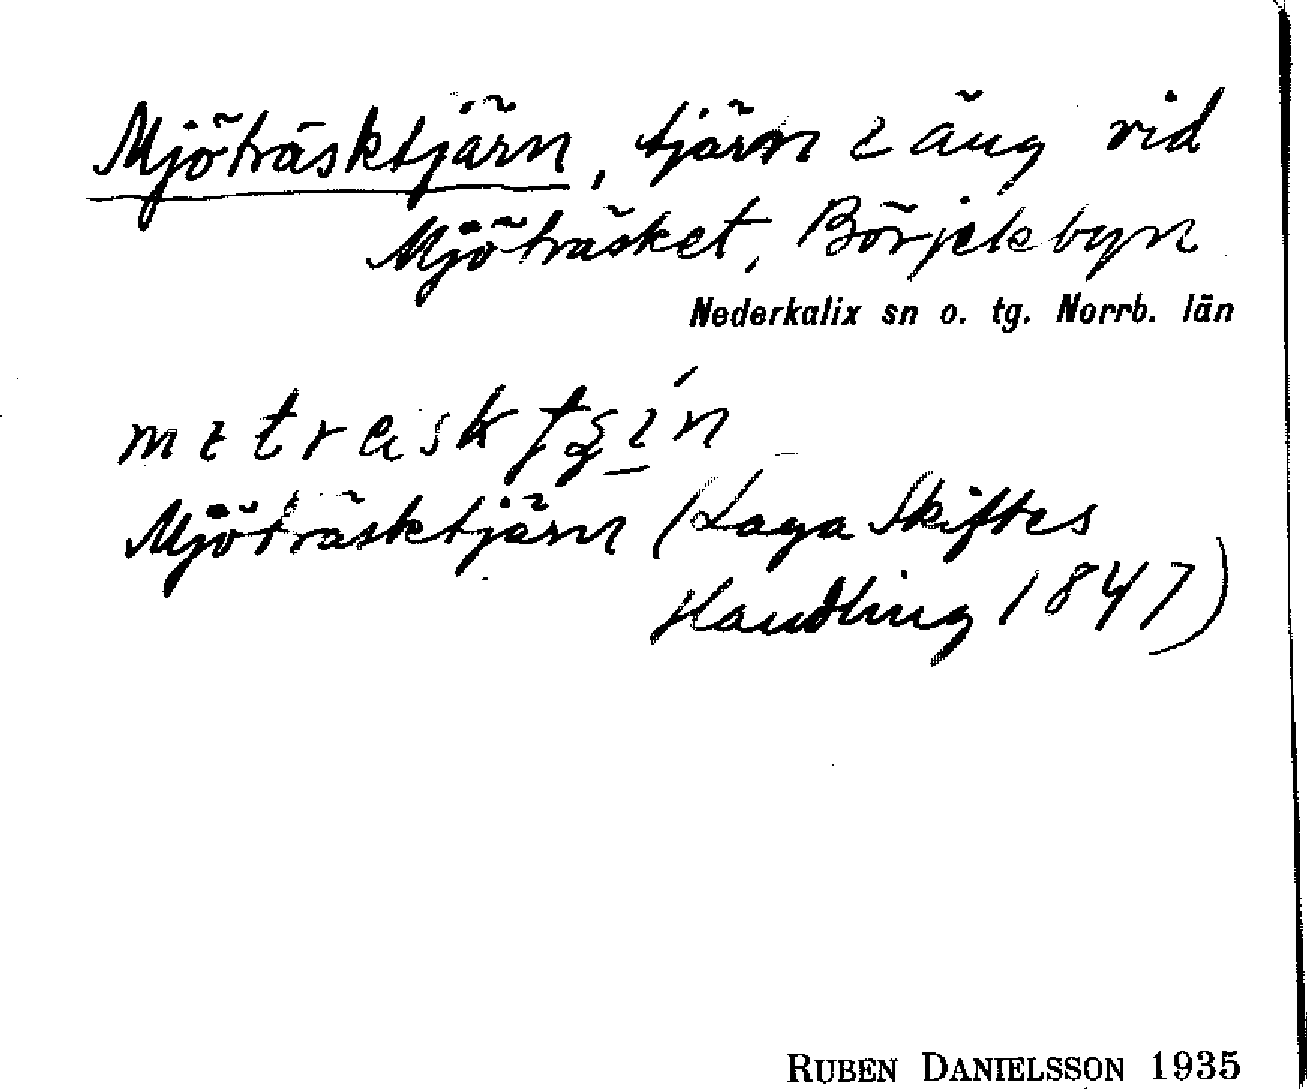 Mjöträsktjärn, tjärn i äng vid
Mjöträsket, Börjelsbyn
Nederkalix sn o. tg. Norrb. län
Mjöträsktjärn (Laga Skiftes
Handling 1847)
RUBEN DANIELSSON 1935